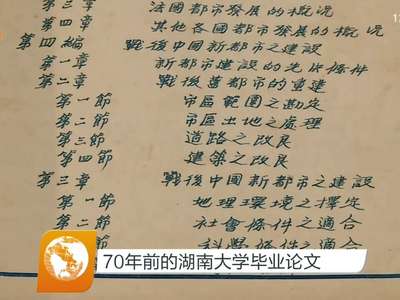 第三章 法國都市發展的概況
第四章 其他各國都市發展的概況
第四編 戰後中國新都市之建設
第一章 新都市建設的先決條件
第二章 戰後舊都市的重建
第一節 市區範圍之勘定
第二節 市區土地之處理
第三節 道路之改良
第四節 建築之改良
第三章 戰後中國新都市之建設
第一節 地理環境之擇定
第二節 社會條件之適合
科學條件之適合
70年前的湖南大学毕业论文